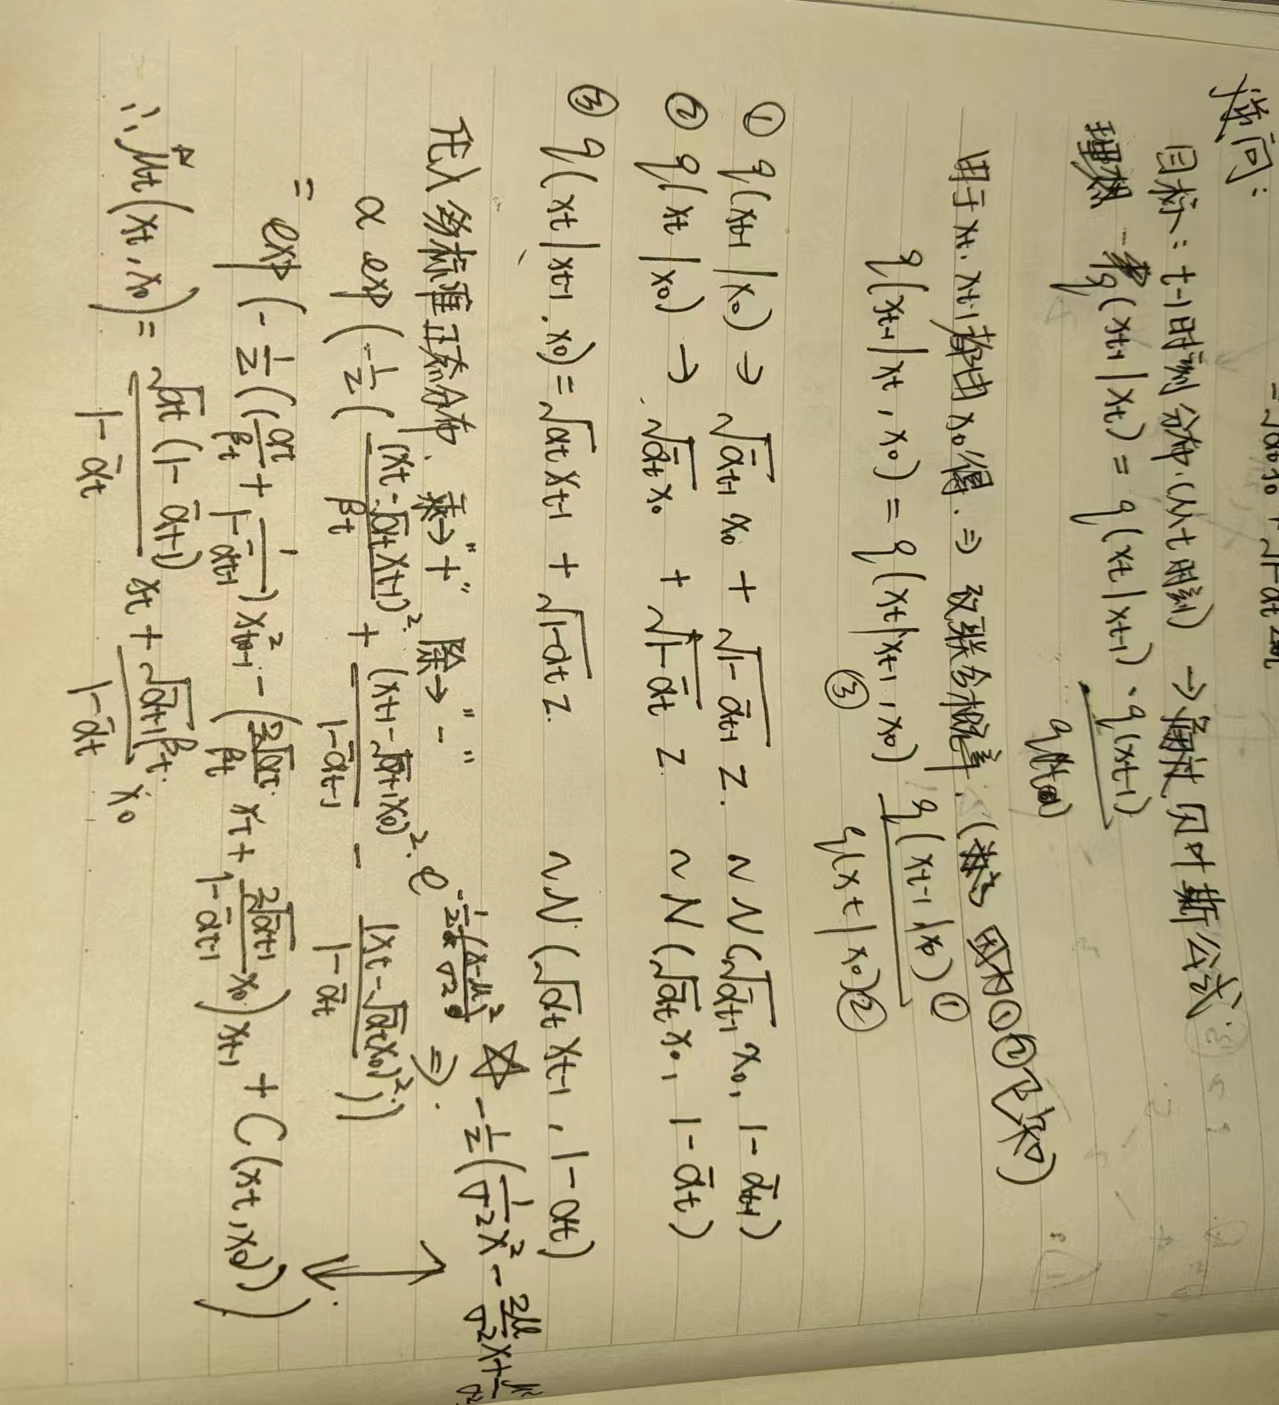 逆向：
目标：t-1时刻分布.(从t时刻) → 通过贝叶斯公式.
理想 q(xt-1|xt) = q(xt|xt-1) · q(xt-1) / q(xt)
用于xt. xt-1都由x0得. ⇒ 改联合概率. ( 因为①②已知)
q(xt-1|xt, x0) = q(xt|xt-1, x0) ③ q(xt-1|x0)① / q(xt|x0)②
① q(xt-1|x0) → √ᾱt-1 x0 + √1-ᾱt-1 z. ~ N(√ᾱt-1 x0, 1-ᾱt-1)
② q(xt|x0) → √ᾱt x0 + √1-ᾱt z ~ N(√ᾱt x0, 1-ᾱt)
③ q(xt|xt-1, x0) = √αt xt-1 + √1-αt z. ~ N(√αt xt-1, 1-αt)
代入 标准正态分布. 乘→"+" 除→"-" e^{-½ (x-μ)²/σ²} ☆ ⇒. -½(1/σ² x² - 2μ/σ² x + μ²/σ²
∝ exp(-½((xt-√αt xt-1)²/βt + (xt-1-√ᾱt-1 x0)²/1-ᾱt-1 - (xt-√ᾱt x0)²/1-ᾱt))
= exp(-½((αt/βt + 1/1-ᾱt-1) x²t-1 - (2√αt/βt xt + 2√ᾱt-1/1-ᾱt-1 x0) xt-1 + C(xt, x0)))
∴ μ̃t(xt, x0) = √αt(1-ᾱt-1)/1-ᾱt xt + √ᾱt-1 βt/1-ᾱt x0